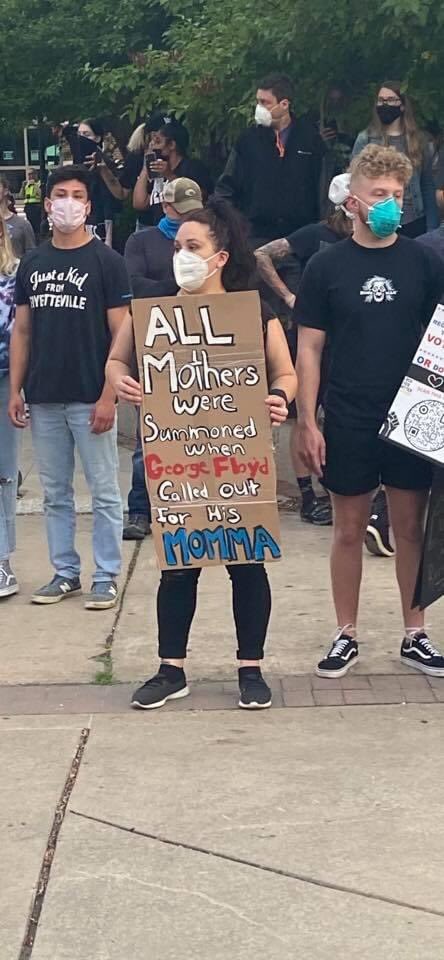 Just a Kid
FROM
FAYETTEVILLE
ALL
Mothers
were
Summoned
when
George Floyd
Called out
for His
MOMMA
VO
OR D